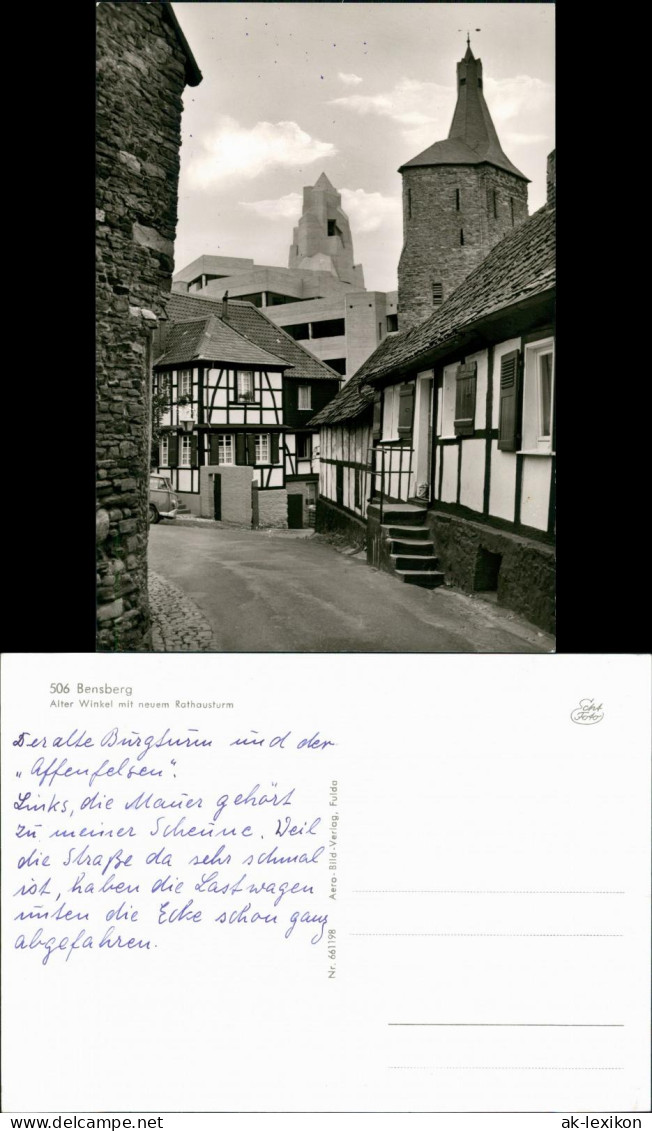 506 Bensberg
Alter Winkel mit neuem Rathausturm
Echt
Foto
Der alte Burgturm und der
„Affenfelsen".
Links, die Mauer gehört
zu meiner Scheune. Weil
die Straße da sehr schmal
ist, haben die Lastwagen
unten die Ecke schon ganz
abgefahren.
Nr. 661198 Aero-Bild-Verlag, Fulda
ak-lexikon
ak-lexikon.com